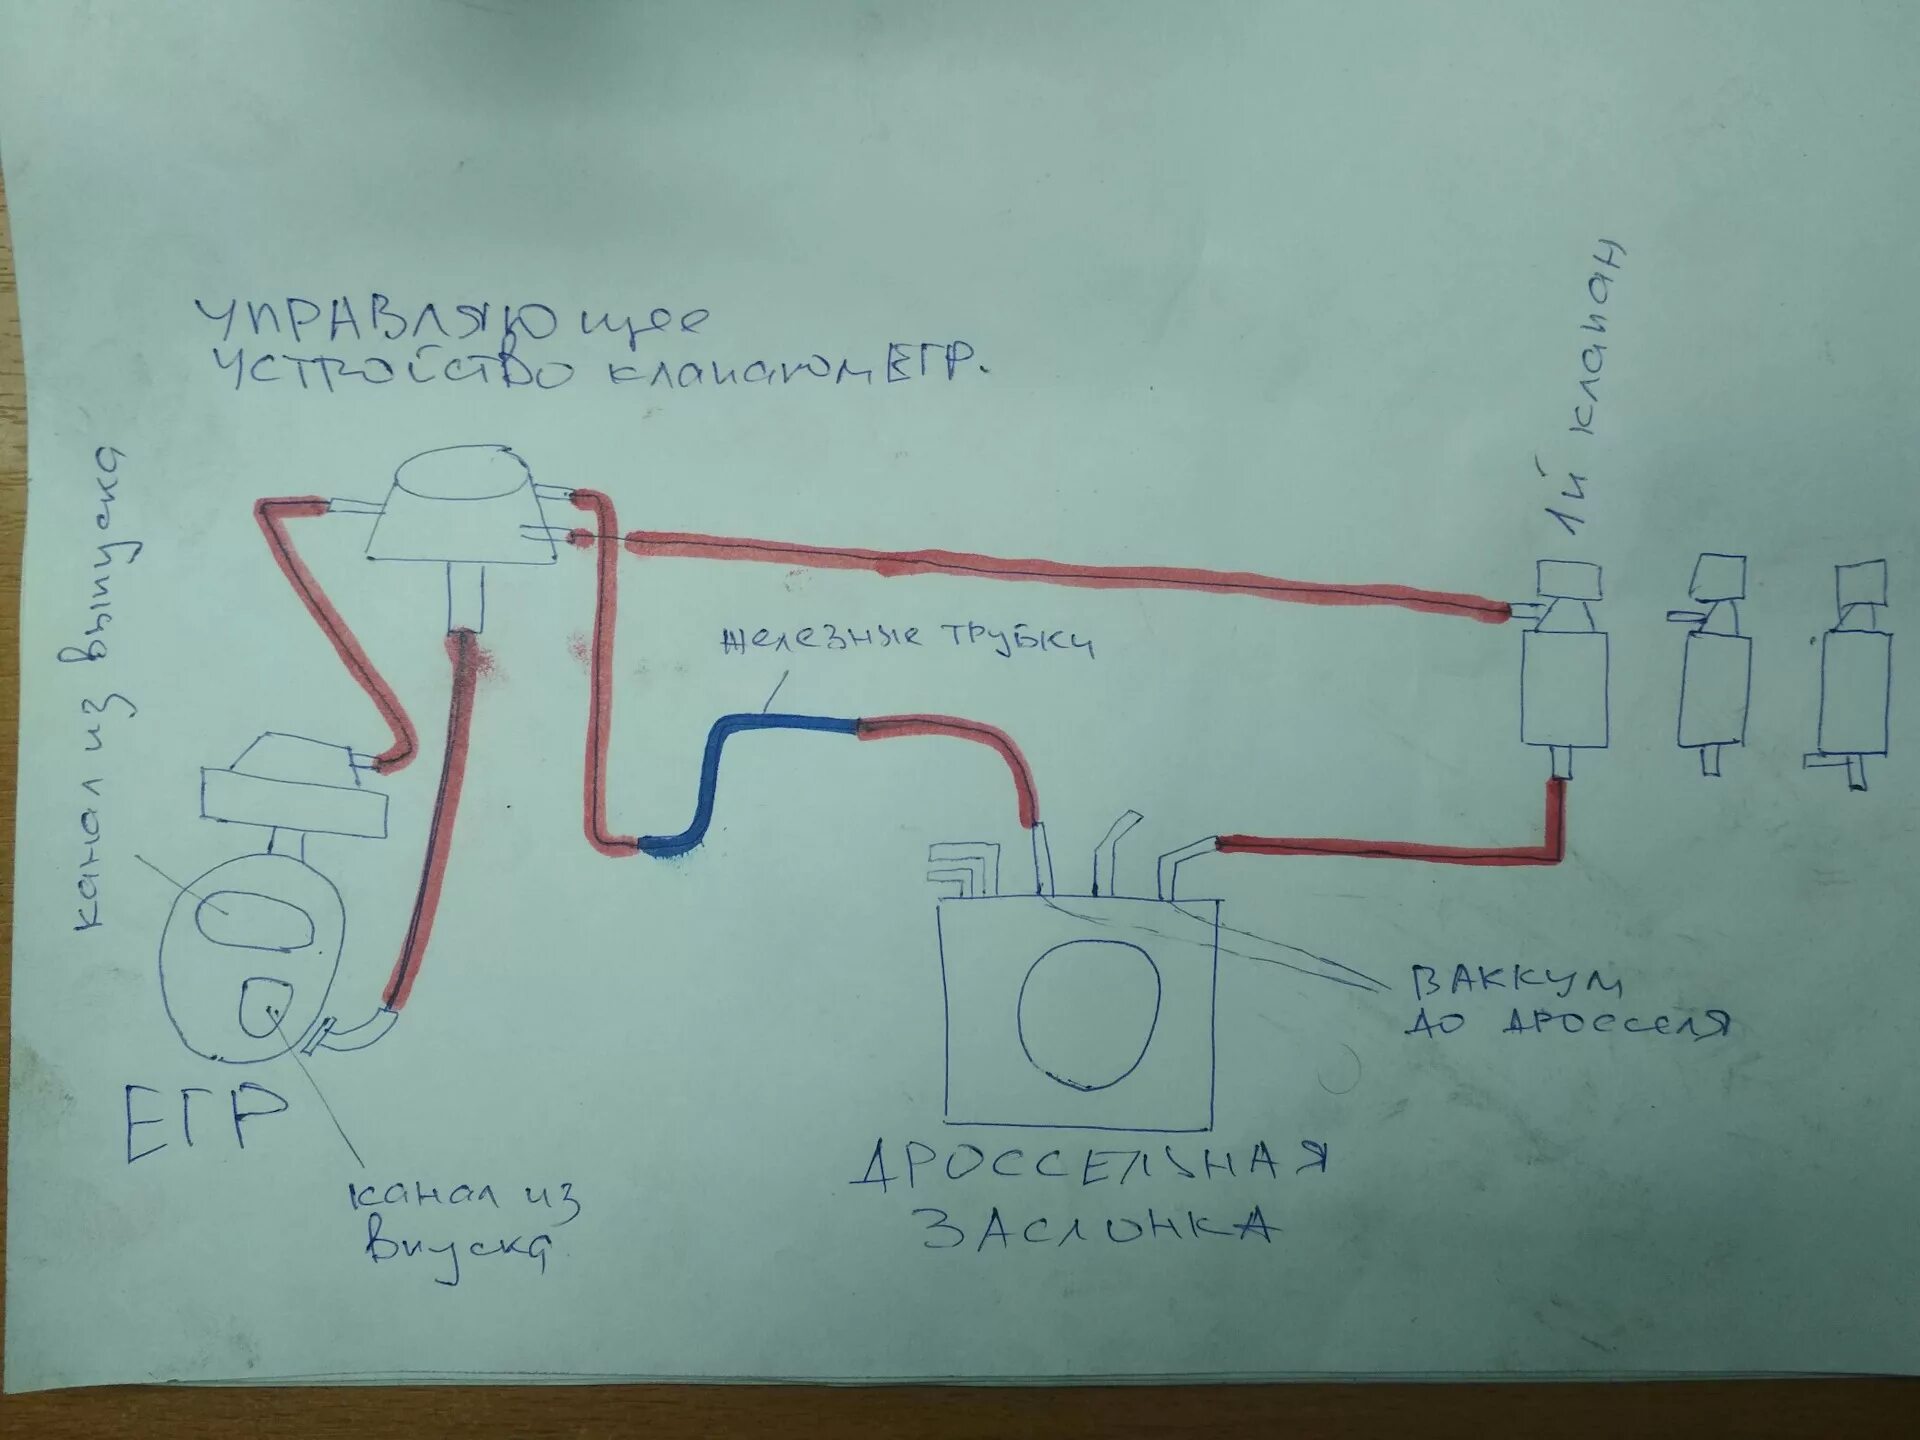 УПРАВЛЯЮщее
УСТРОЙСТВО клапаном ЕГР.
канал из выпуска
1й клапан
железные трубки
ВАККУМ
ДО ДРОССЕЛЯ
ЕГР
канал из
впуска
ДРОССЕЛЬНАЯ
ЗАСЛОНКА